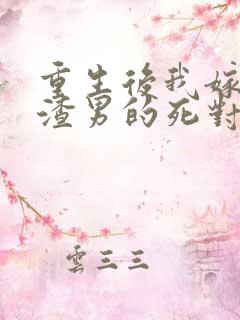 重生後我嫁
渣男的死對
雲三三